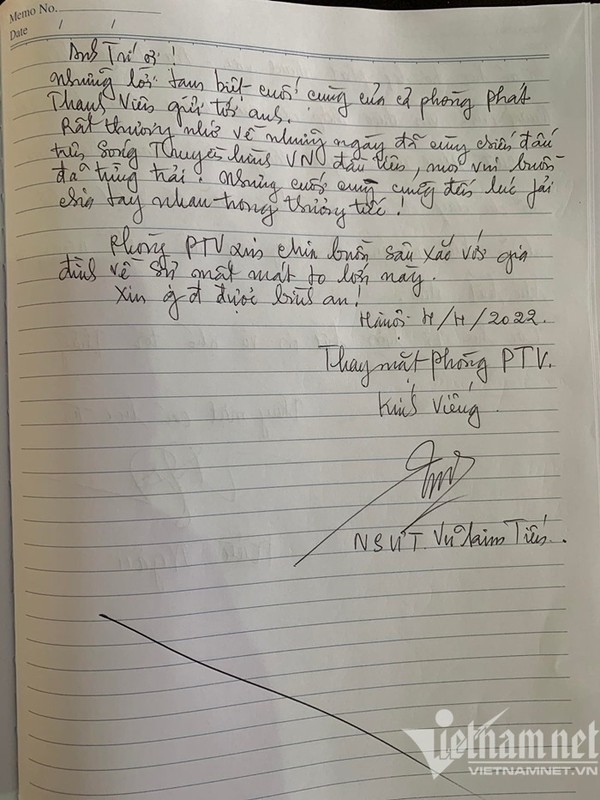 Memo No.
Date / /
Anh Trí ơi!
Những lời tạm biệt cuối cùng của cả phòng Phát
Thanh Viên gửi tới anh.
Rất thương nhớ về những ngày đã cùng chiến đấu
trên sóng Truyền hình VN đầu tiên, mọi vui buồn
đã từng trải. Nhưng cuối cùng cũng đến lúc phải
chia tay nhau trong thương tiếc!
Phòng PTV xin chia buồn sâu sắc với gia
đình về sự mất mát to lớn này.
Xin gđ được bình an!
Hà nội 4/4/2022.
Thay mặt phòng PTV.
Kính Viếng
NSƯT. Vũ Kim Tiến.
Vietnamnet
VIETNAMNET.VN